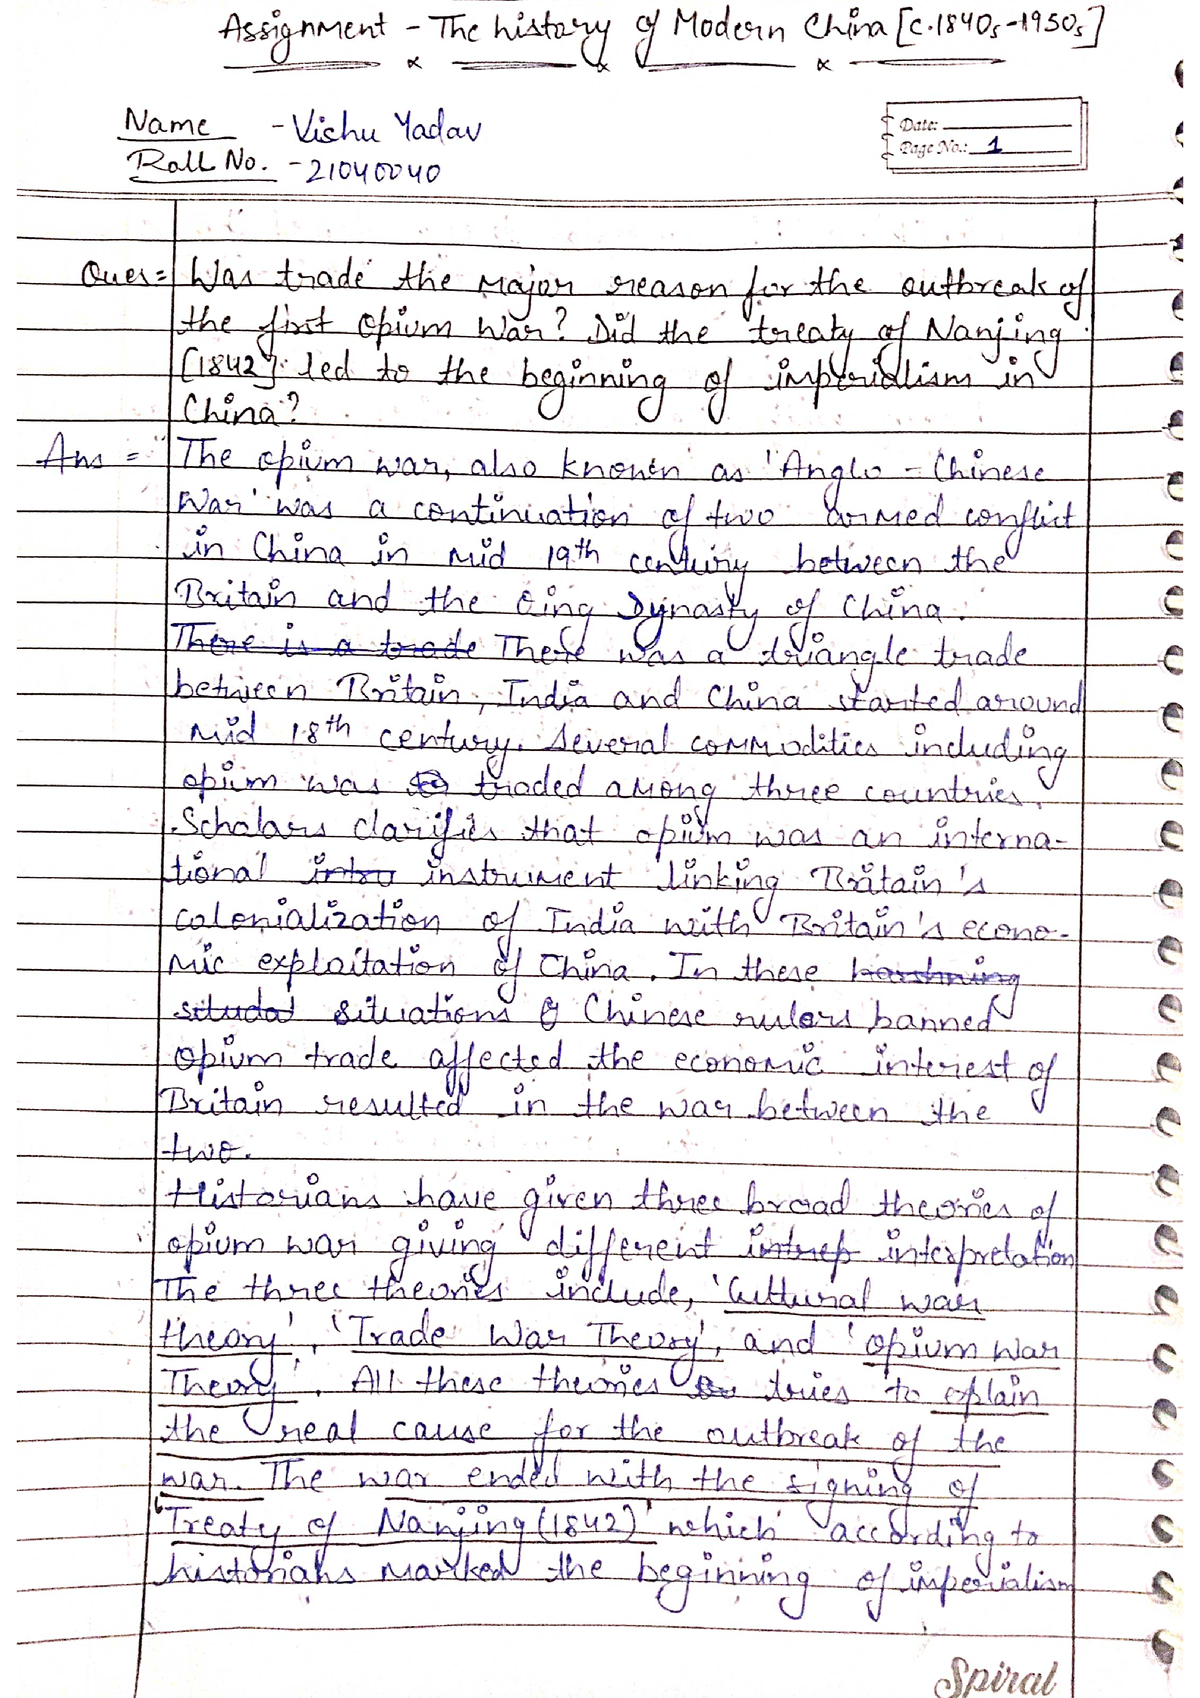 Assignment - The history of Modern China [c.1840s-1950s]
Name - Vishu Yadav
Roll No. - 21040040
Date:
Page No.: 1
Ques = Was trade the major reason for the outbreak of
the first opium war? Did the treaty of Nanjing
[1842] led to the beginning of imperialism in
China?
Ans = The opium war, also known as 'Anglo - Chinese
War' was a continuation of two armed conflict
in China in mid 19th century between the
Britain and the Qing Dynasty of China.
There is a trade There was a triangle trade
between Britain, India and China started around
mid 18th century. Several commodities including
opium was to traded among three countries.
Scholars clarifies that opium was an interna-
tional intru instrument linking Britain's
colonialization of India with Britain's econo-
mic exploitation of China. In these
situdat situations Chinese rulers banned
opium trade affected the economic interest of
Britain resulted in the war between the
two.
Historians have given three broad theories of
opium war giving different intrep interpretation
The three theories include, 'Cultural war
theory', 'Trade War Theory', and 'opium war
Theory'. All these theories tries to explain
the real cause for the outbreak of the
war. The war ended with the signing of
'Treaty of Nanjing (1842)' which according to
historians marked the beginning of imperialism
Spiral